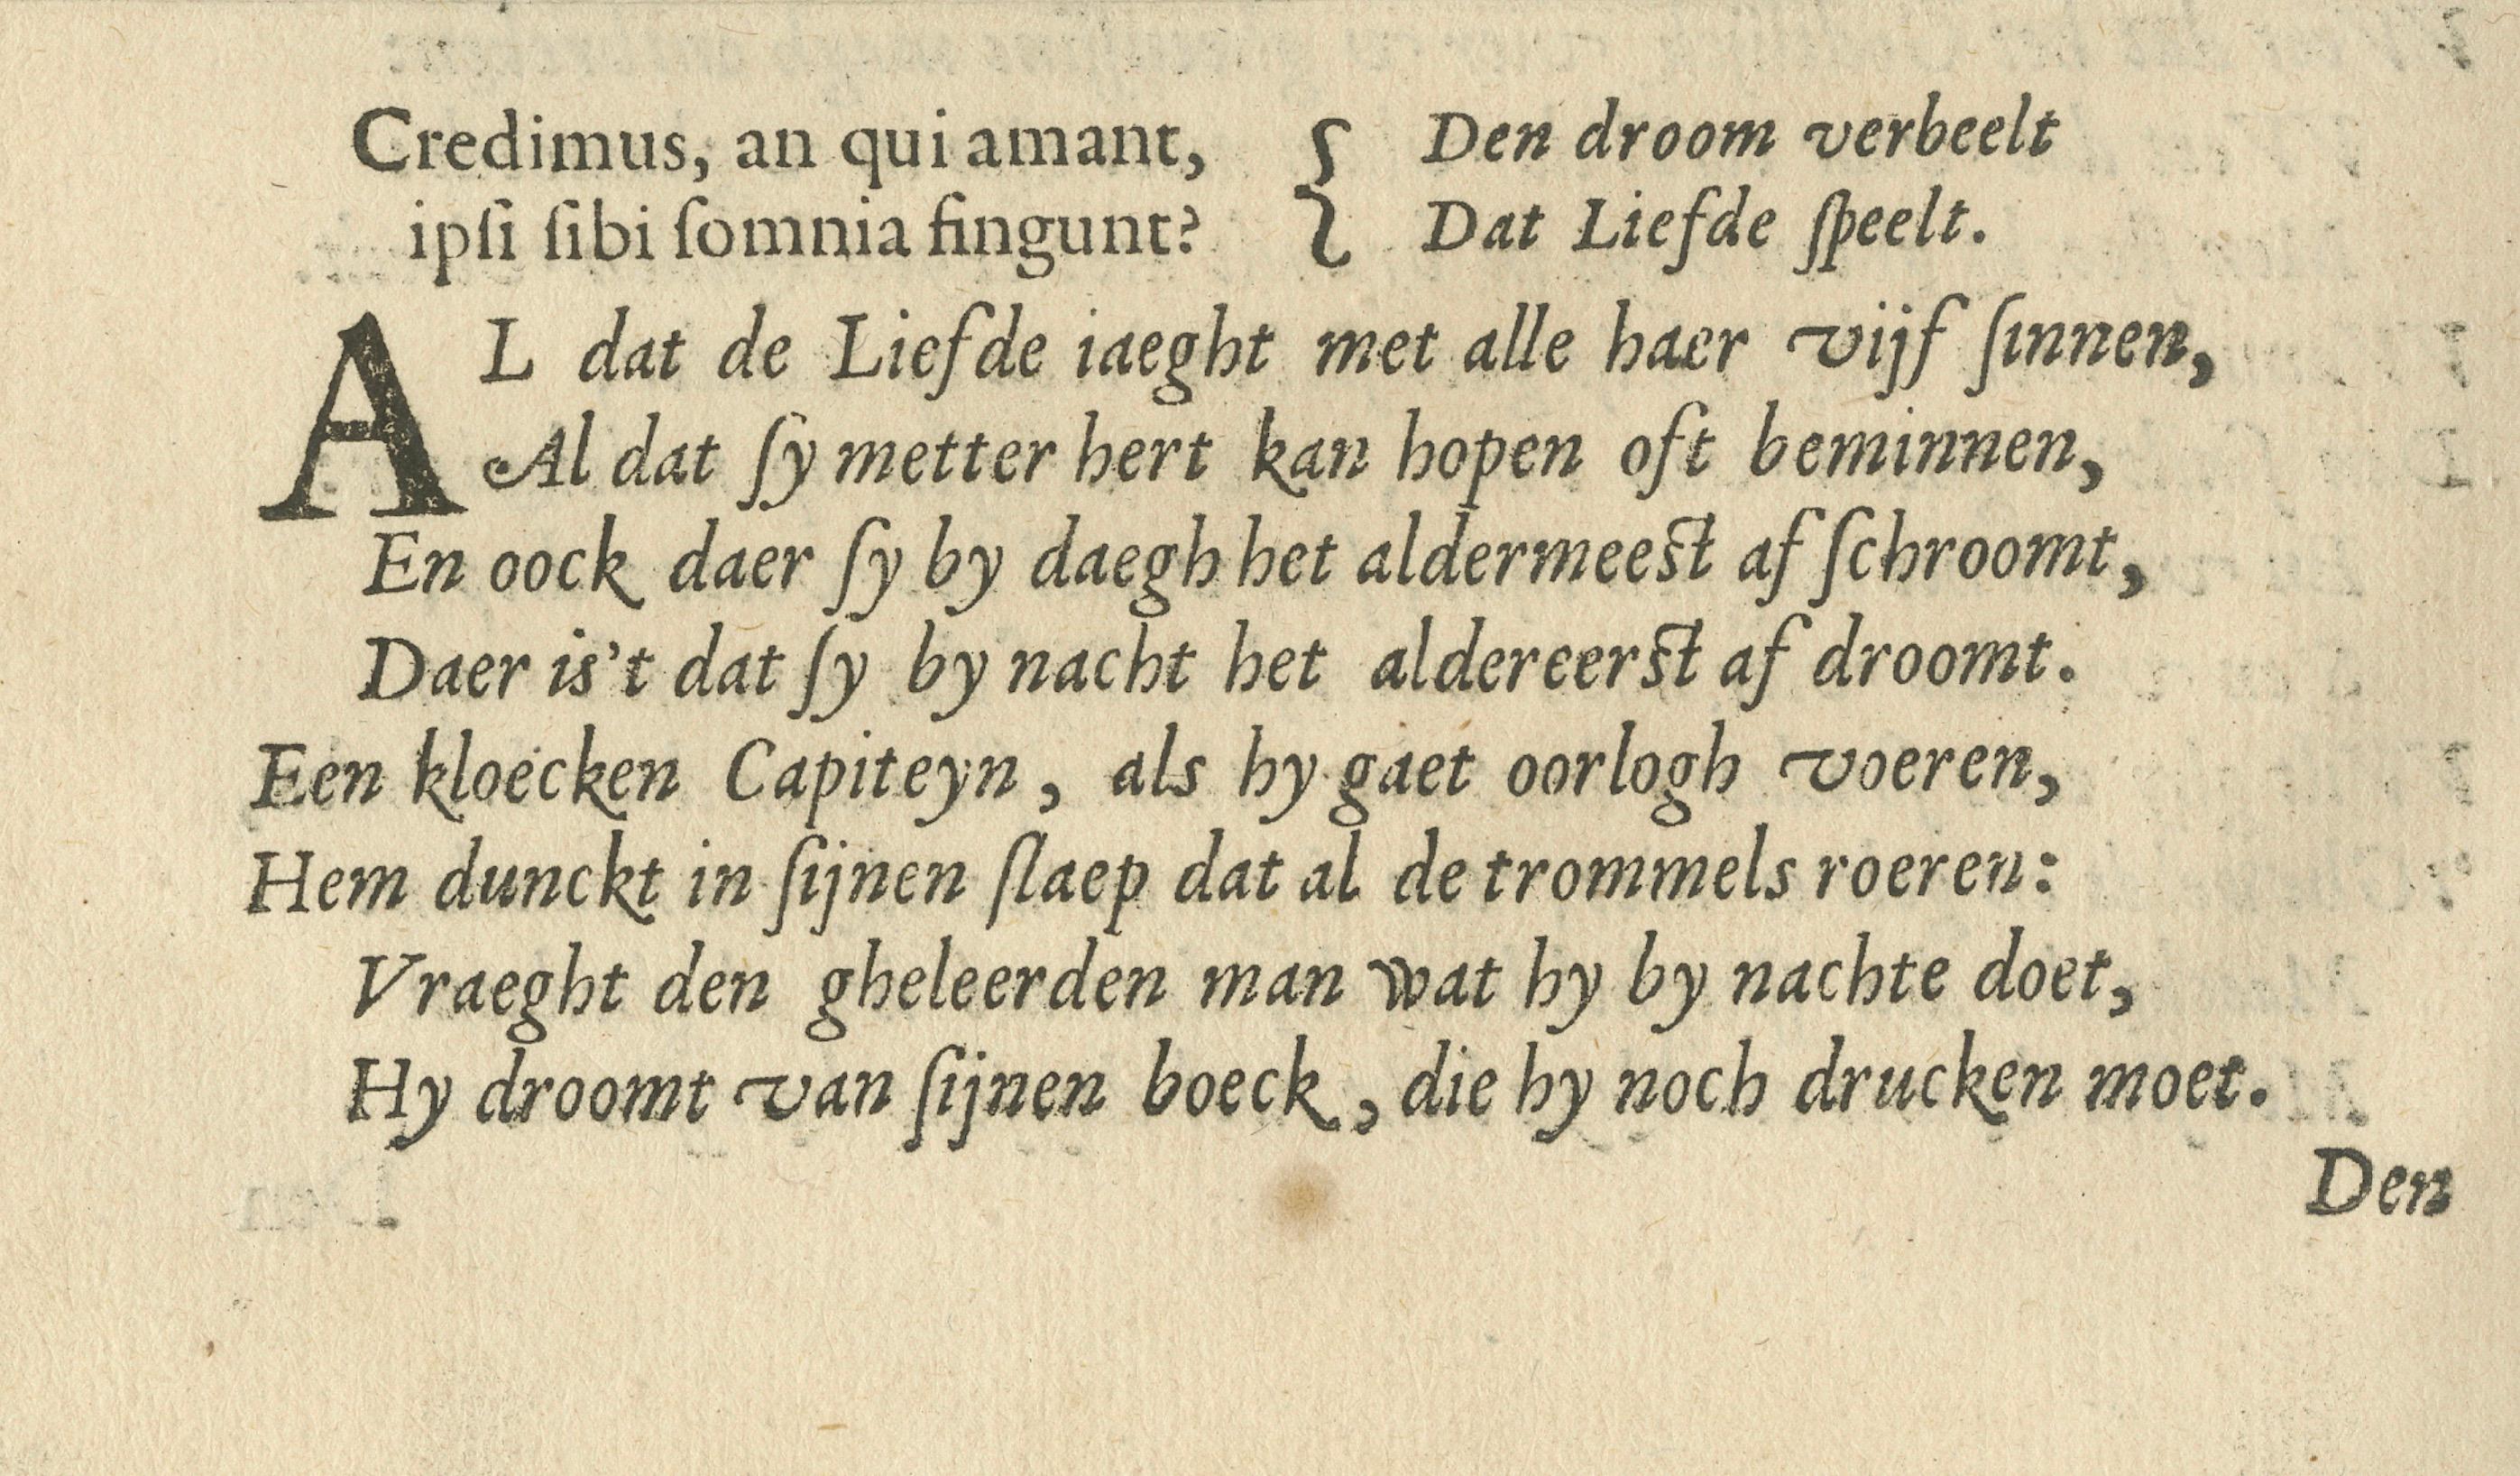 Credimus, an qui amant,
ipſi ſibi ſomnia fingunt?
Den droom verbeelt
Dat Liefde ſpeelt.
AL dat de Liefde iaeght met alle haer vijf ſinnen,
Al dat ſy metter hert kan hopen oft beminnen,
En oock daer ſy by daegh het aldermeest af ſchroomt,
Daer is't dat ſy by nacht het aldereerst af droomt.
Een kloecken Capiteyn, als hy gaet oorlogh voeren,
Hem dunckt in ſijnen ſlaep dat al de trommels roeren:
Vraeght den gheleerden man wat hy by nachte doet,
Hy droomt van ſijnen boeck, die hy noch drucken moet.
Den